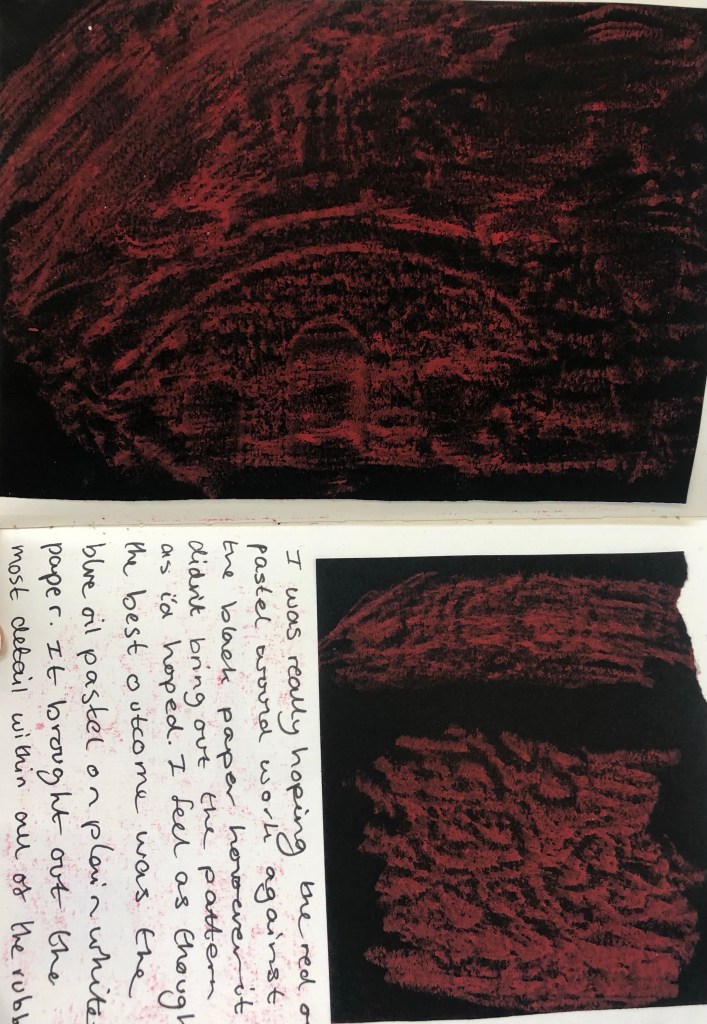 I was really hoping the red o
pastel would work against
the black paper however it
didn't bring out the pattern
as i'd hoped. I feel as though
the best outcome was the
blue oil pastel on plain white
paper. It brought out the
most detail within all of the rubb